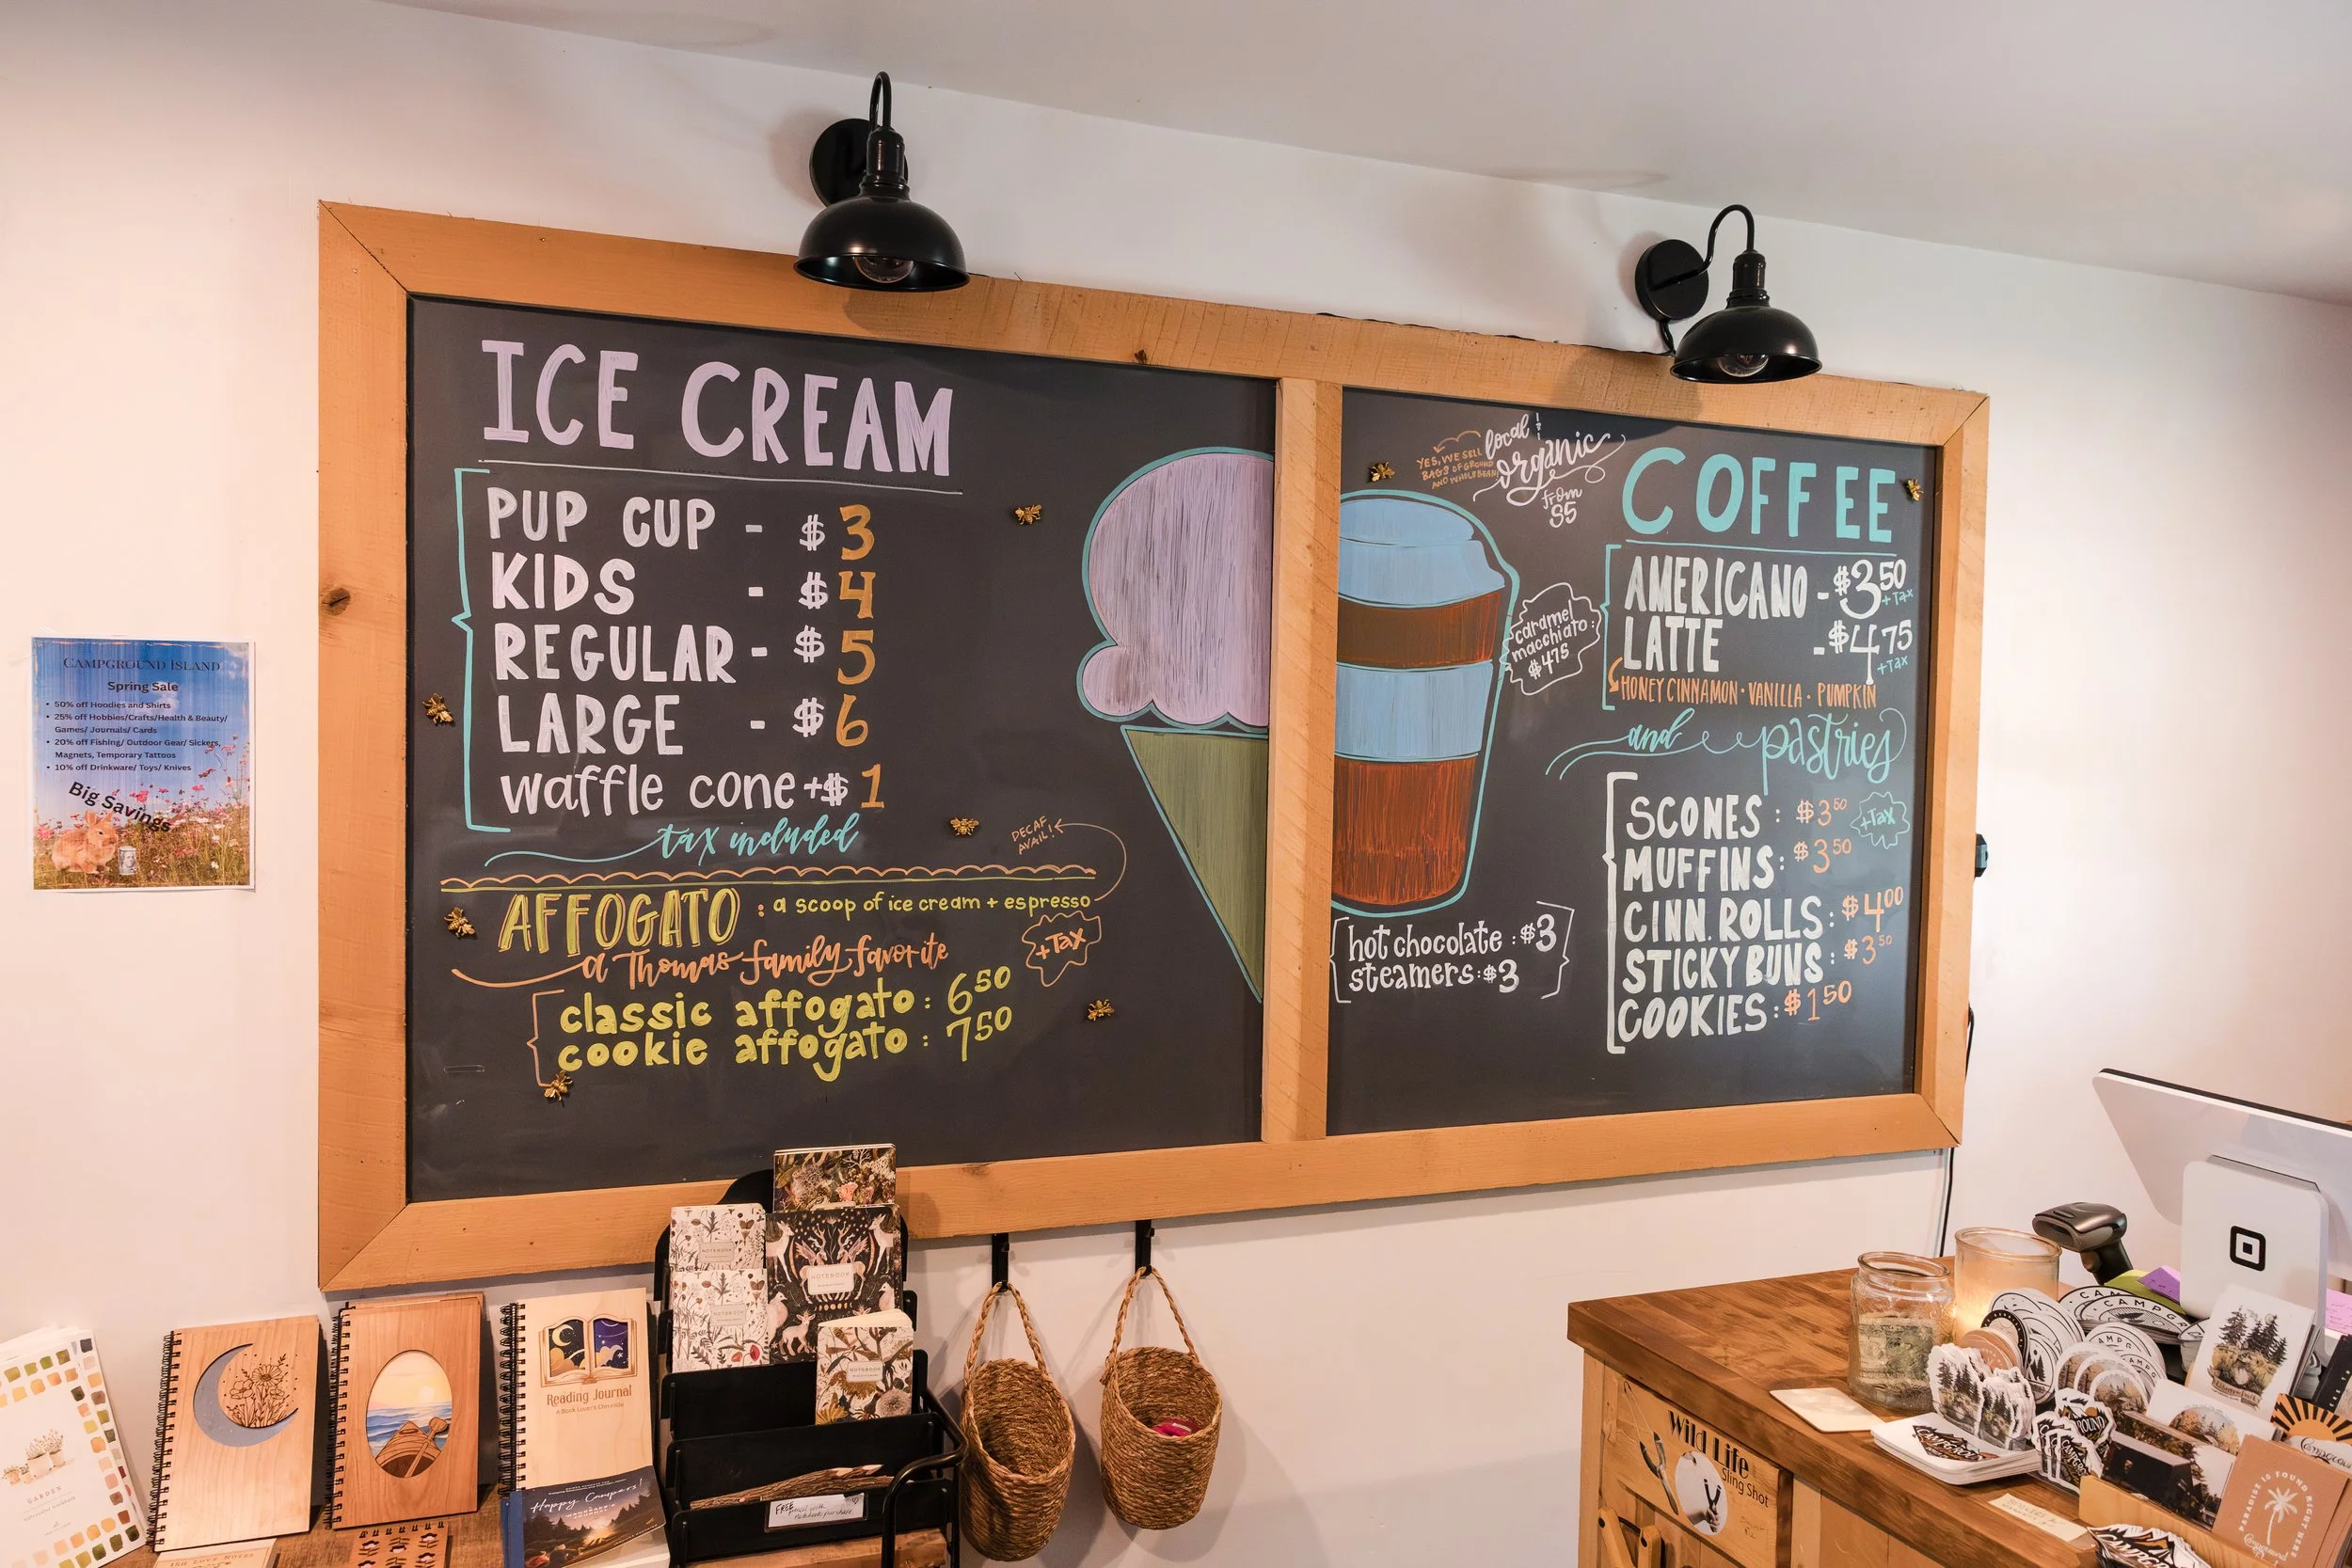 ICE CREAM
PUP CUP - $3
KIDS - $4
REGULAR - $5
LARGE - $6
waffle cone +$1
tax included
DECAF
AVAIL!
AFFOGATO : a scoop of ice cream + espresso
a Thomas family favorite
+Tax
classic affogato : 6.50
cookie affogato : 7.50
YES, WE SELL
BAGS OF GROUND
AND WHOLE BEAN
local &
organic
from
$5
COFFEE
AMERICANO - $3.50
+Tax
LATTE - $4.75
+Tax
HONEY CINNAMON · VANILLA · PUMPKIN
caramel
macchiato:
$4.75
and pastries
SCONES : $3.50
+Tax
MUFFINS: $3.50
CINN. ROLLS: $4.00
STICKY BUNS : $3.50
COOKIES: $1.50
hot chocolate : $3
steamers: $3
CAMPGROUND ISLAND
Spring Sale
• 50% off Hoodies and Shirts
• 25% off Hobbies/Crafts/Health & Beauty/
Games/ Journals/ Cards
• 20% off Fishing/ Outdoor Gear/ Sickers,
Magnets, Temporary Tattoos
• 10% off Drinkware/ Toys/ Knives
Big Savings
GARDEN
Reading Journal
A Book Lover's Chronicle
Happy Campers!
NOTEBOOK
NOTEBOOK
NOTEBOOK
NOTEBOOK
FREE
Wild Life
Sling Shot
PARADISE IS FOUND RIGHT HERE